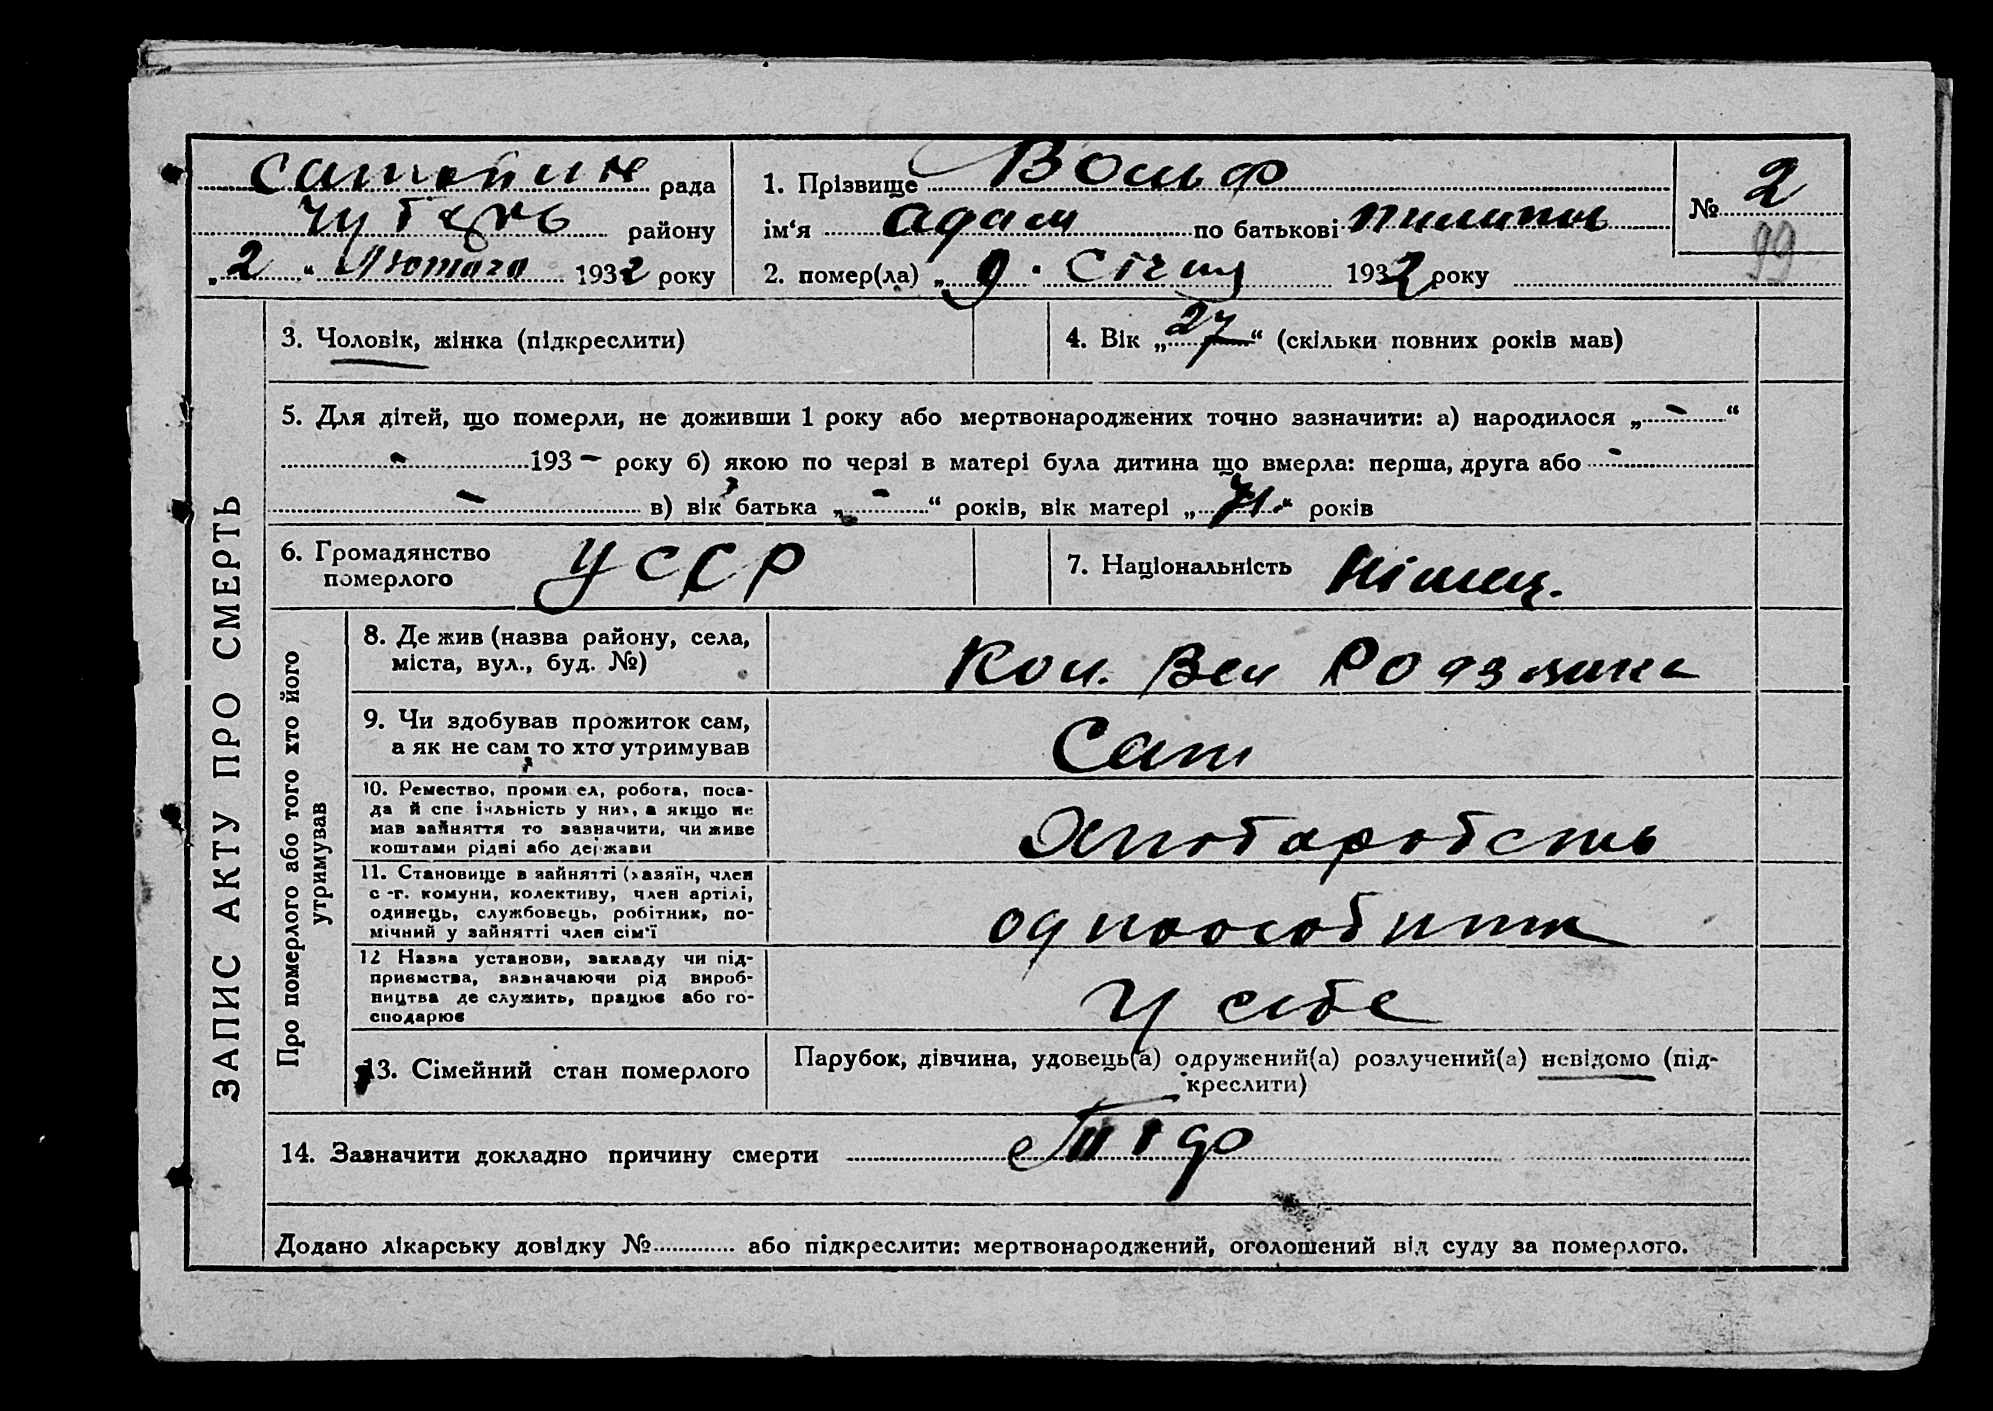 рада
району
„2“ Лютого 1932 року
1. Прізвище Вольф
ім‘я Адам по батькові
2. помер(ла) „9 Січня 1932 року
№ 2
99
ЗАПИС АКТУ ПРО СМЕРТЬ
3. Чоловік, жінка (підкреслити)
4. Вік „27“ (скільки повних років мав)
5. Для дітей, що померли, не доживши 1 року або мертвонароджених точно зазначити: а) народилося „-“
- 193- року б) якою по черзі в матері була дитина що вмерла: перша, друга або -
- в) вік батька „-“ років, вік матері „ “ років
6. Громадянство
померлого
УССР
7. Національність Німец.
Про померлого або того хто його
утримував
8. Де жив (назва району, села,
міста, вул., буд. №)
Кол. Вел
9. Чи здобував прожиток сам,
а як не сам то хто утримував
Сам
10. Ремество, проми ел, робота, поса-
да й спе іяльність у них, а якщо не
мав зайняття то зазначити, чи живе
коштами рідні або держави
11. Становище в зайнятті (хазяїн, член
с.-г. комуни, колективу, член артілі,
одинець, службовець, робітник, по-
мічний у зайнятті член сім'ї
12 Назва установи, закладу чи під-
приємства, зазначаючи рід вироб-
ництва де служить, працює або го-
сподарює
У себе
13. Сімейний стан померлого
Парубок, дівчина, удовець(а) одружений(а) розлучений(а) невідомо (під-
креслити)
14. Зазначити докладно причину смерти Тіф
Додано лікарську довідку № або підкреслити: мертвонароджений, оголошений від суду за померлого.